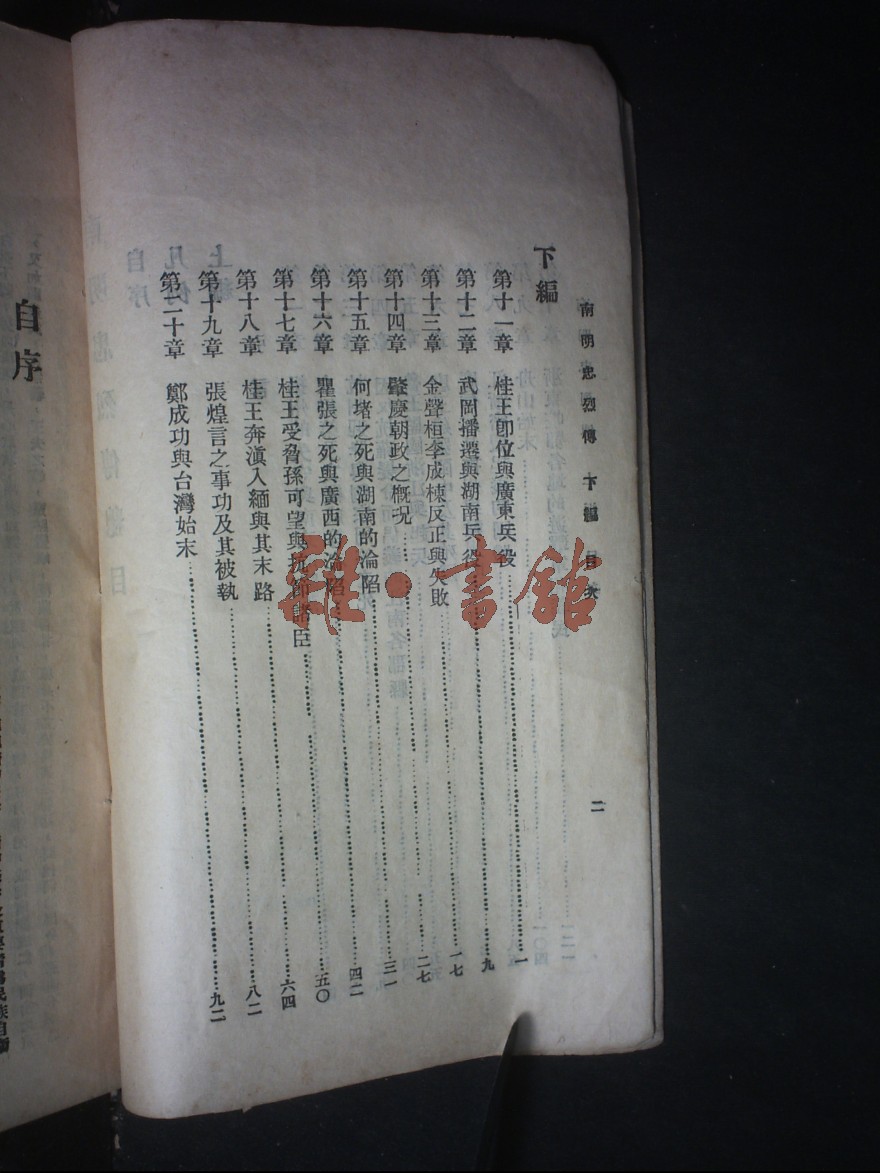 南明忠烈傳 下編 目次
二
下編
第十一章 桂王卽位與廣東兵役……一
第十二章 武岡播遷與湖南兵役……九
第十三章 金聲桓李成棟反正與失敗……一七
第十四章 肇慶朝政之概況……二七
第十五章 何堵之死與湖南的淪陷……三一
第十六章 瞿張之死與廣西的淪陷……四二
第十七章 桂王受脅孫可望與抗節諸臣……五〇
第十八章 桂王奔滇入緬與其末路……六四
第十九章 張煌言之事功及其被執……八二
第二十章 鄭成功與台灣始末……九二
自序
雜·書館